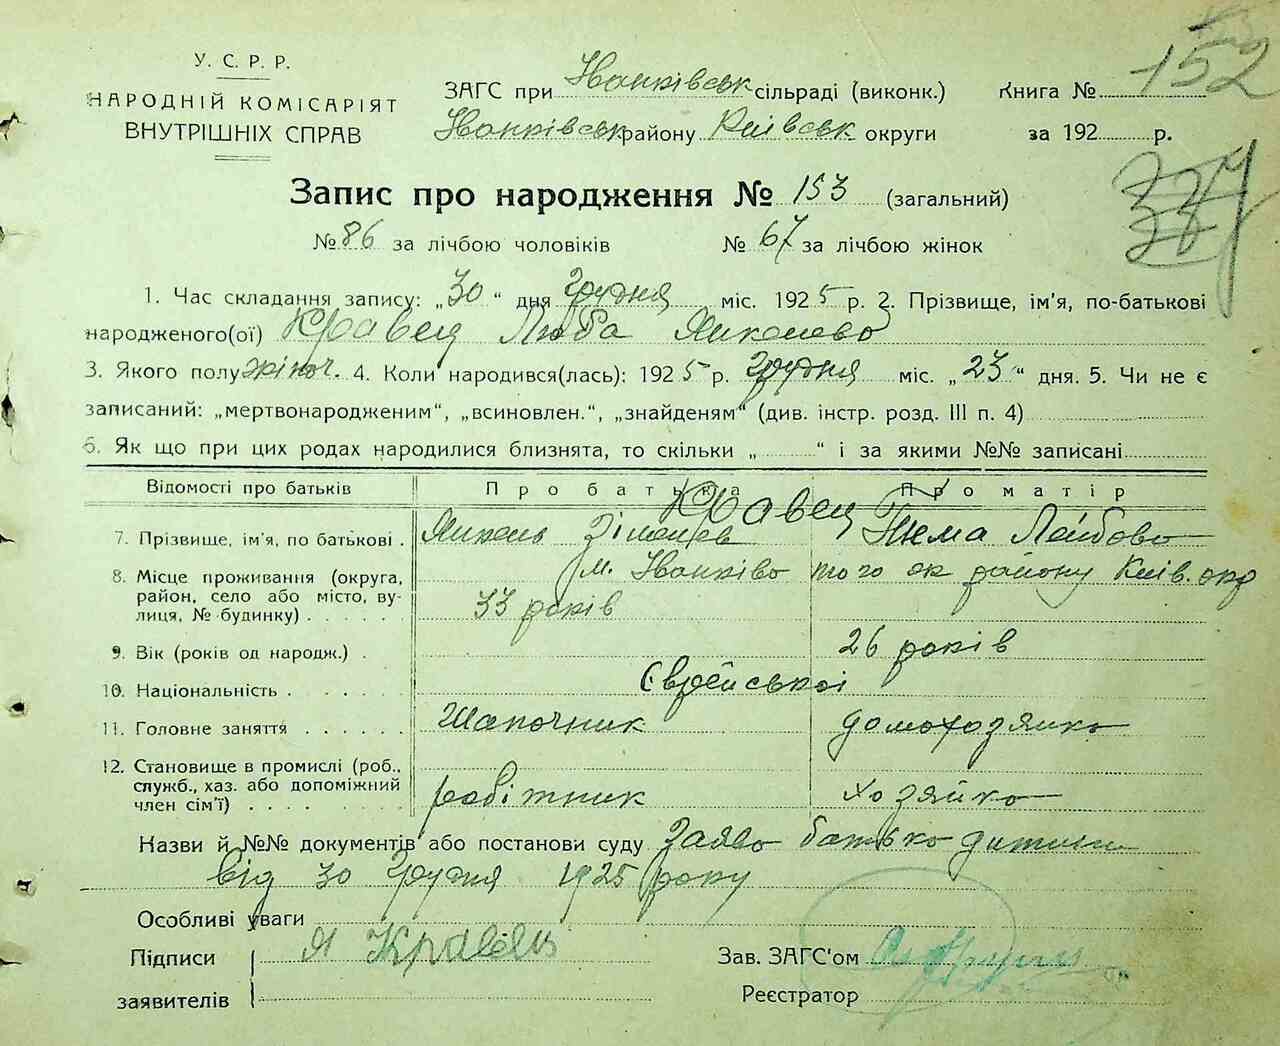 У. С. Р. Р.
НАРОДНІЙ КОМІСАРІЯТ
ВНУТРІШНІХ СПРАВ
ЗАГС при Іванківськ сільраді (виконк.)
Іванківськ району Київськ округи
Книга № 152
за 192 р.
Запис про народження № 153 (загальний)
№ 86 за лічбою чоловіків № 67 за лічбою жінок
1. Час складання запису: „30“ дня Грудня міс. 1925 р. 2. Прізвище, ім'я, по-батькові
народженого(ої) Кравец Люба
3. Якого полу жіноч. 4. Коли народився(лась): 1925 р. Грудня міс. „23“ дня. 5. Чи не є
записаний: „мертвонародженим“, „всиновлен.“, „знайденям“ (див. інстр. розд. III п. 4)
6. Як що при цих родах народилися близнята, то скільки „ “ і за якими №№ записані
Відомості про батьків Про батька Про матір
Кравец
7. Прізвище, ім'я, по батькові . Янкель Лейбова
8. Місце проживання (округа, район, село або місто, вулиця, № будинку) . . . . . м. Іванків того ж району Київ. окр
33 років
9. Вік (років од народж.) . 26 років
10. Національність . . . . . . Єврейської
11. Головне заняття . . . . . . Шапочник домохозяйка
12. Становище в промислі (роб., служб., хаз. або допоміжний член сім'ї) . . . . . робітник хозяйка
Назви й №№ документів або постанови суду Заява батька дитини
від 30 Грудня 1925 року
Особливі уваги
Підписи Я Кравець
заявителів
Зав. ЗАГС'ом
Реєстратор